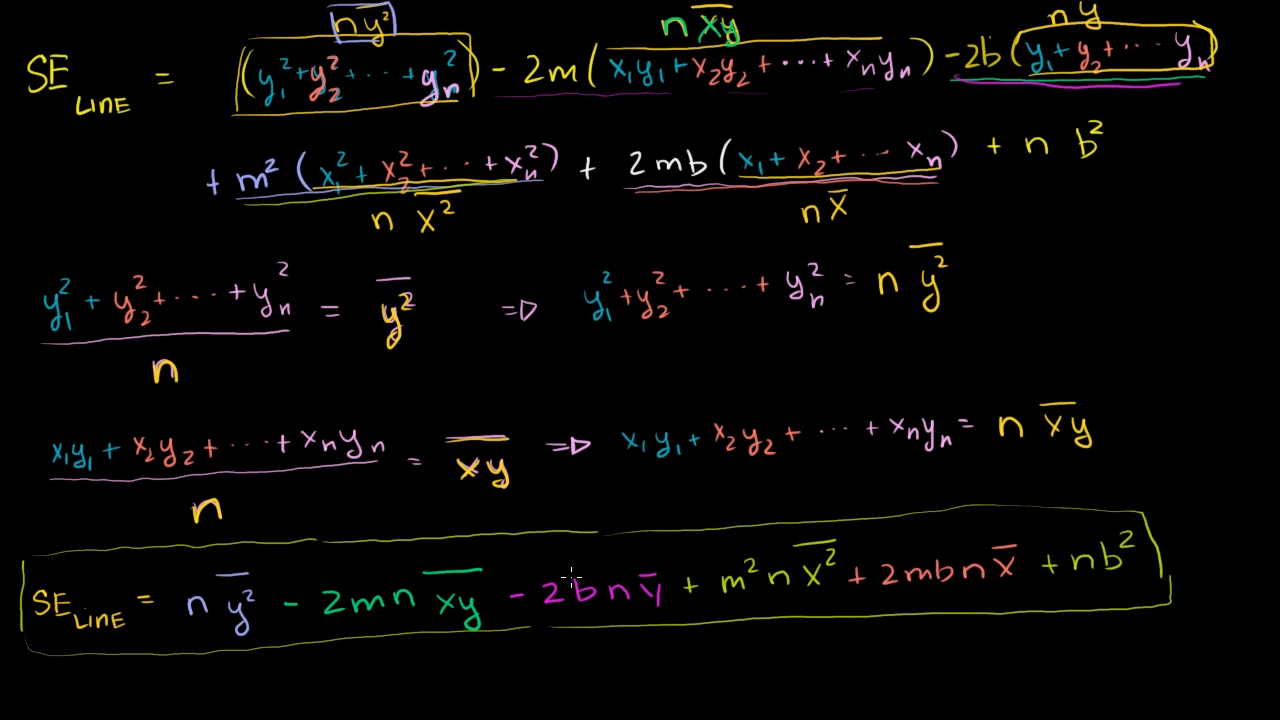 n y² n xy n y
SE LINE = (y₁² + y₂² + ··· + yₙ²) - 2m(x₁y₁ + x₂y₂ + ··· + xₙyₙ) - 2b(y₁ + y₂ + ··· yₙ)
+ m² (x₁² + x₂² + ··· + xₙ²) + 2mb(x₁ + x₂ + ··· xₙ) + n b²
n x̅²̅ n x̅
y₁² + y₂² + ··· + yₙ² = y̅²̅ ⇒ y₁² + y₂² + ··· + yₙ² = n y̅²̅
n
x₁y₁ + x₂y₂ + ··· + xₙyₙ = x̅y̅ ⇒ x₁y₁ + x₂y₂ + ··· + xₙyₙ = n x̅y̅
n
SE LINE = n y̅²̅ - 2mn x̅y̅ - 2bn y̅ + m²n x̅²̅ + 2mbn x̅ + nb²